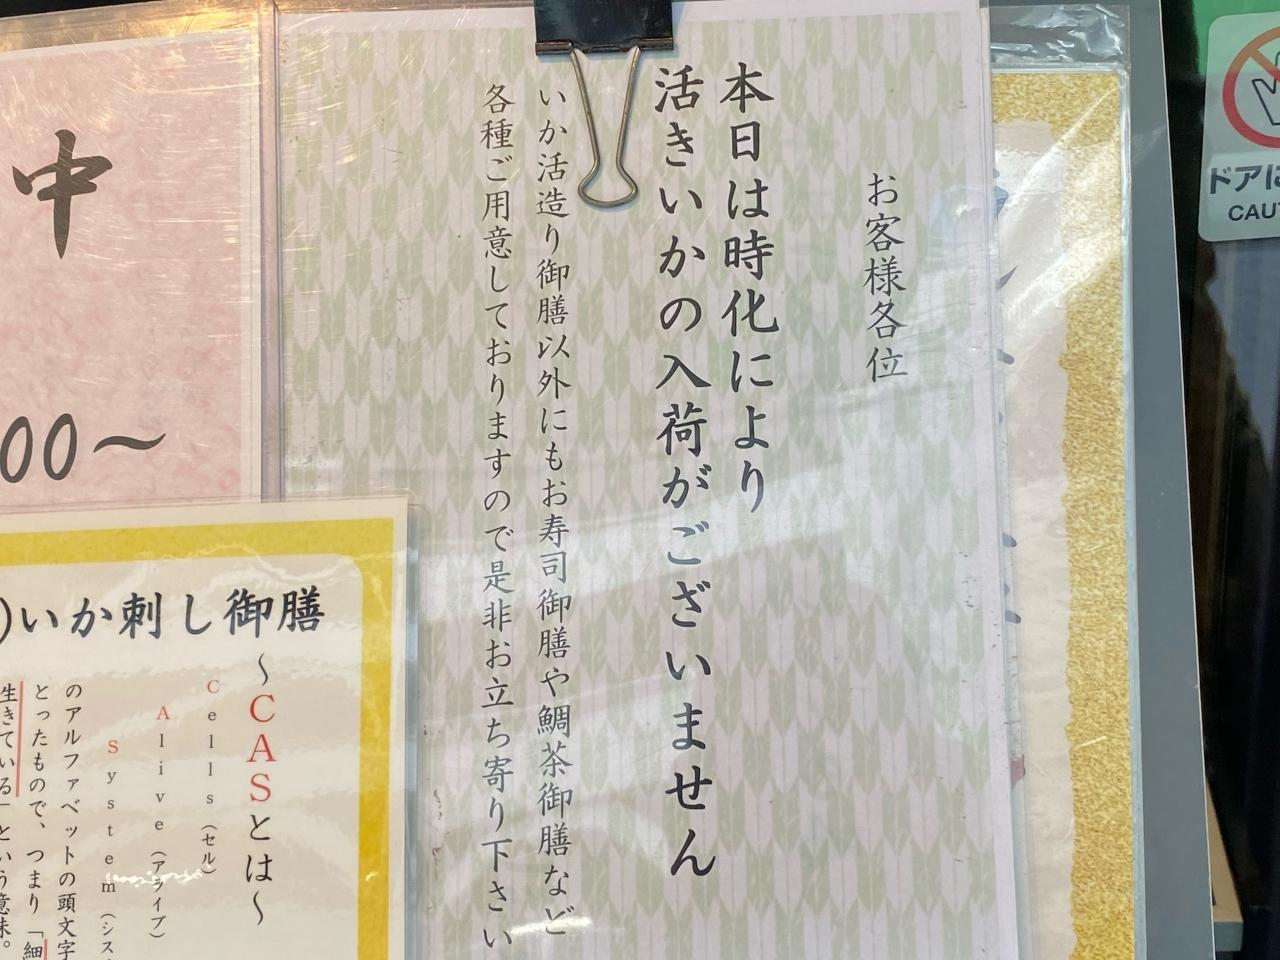 お客様各位
本日は時化により
活きいかの入荷がございません
いか活造り御膳以外にもお寿司御膳や鯛茶御膳など
各種ご用意しておりますので是非お立ち寄り下さい
中
00〜
いか刺し御膳
〜CASとは〜
Cells（セル）
Alive（アライブ）
System（シス
のアルファベットの頭文字
とったもので、つまり「細
生きている」という意味。
ドアに
CAU